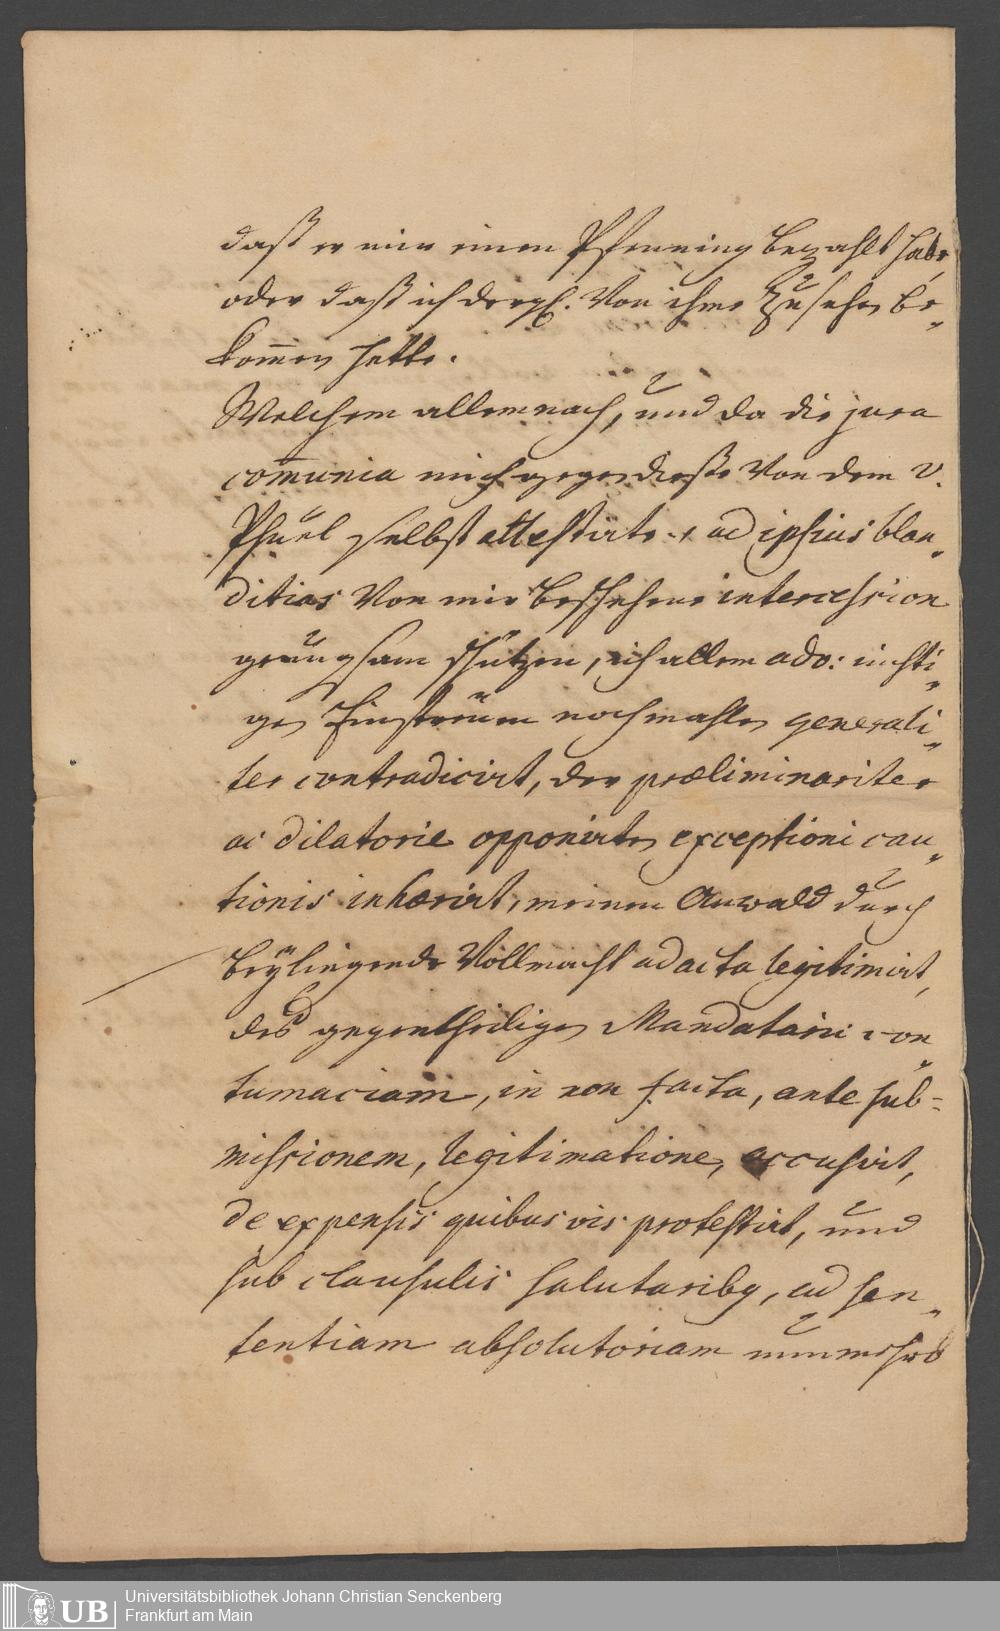 daß er mir einen Pfenning bezahlt habe,
oder daß ich dergl. von ihme zu sehen be„
kom̄en hette.
Welchem allemnach, und da die jura
com̄unia mich gegen diese von dem v.
Pfuel selbst attestirte + ad ipsius blan„
ditias von mir beschehene intercession
genugsam schützen, ich allem adv: nichti„
gen Einstreuen nochmahlen generali„
ter contradicirt, der præliminariter
ac dilatorie opponirten exceptioni cau„
tionis inhærirt, meinen Anwald durch
beyliegende Vollmacht ad acta legitimirt,
des gegentheiligen Mandatarii con„
tumaciam, in non facta, ante sub-
missionem, legitimatione, accusirt,
de expensis quibusvis protestirt, und
sub clausulis salutaribq, ad sen„
tentiam absolutoriam nunmehro
Universitätsbibliothek Johann Christian Senckenberg
Frankfurt am Main
UB